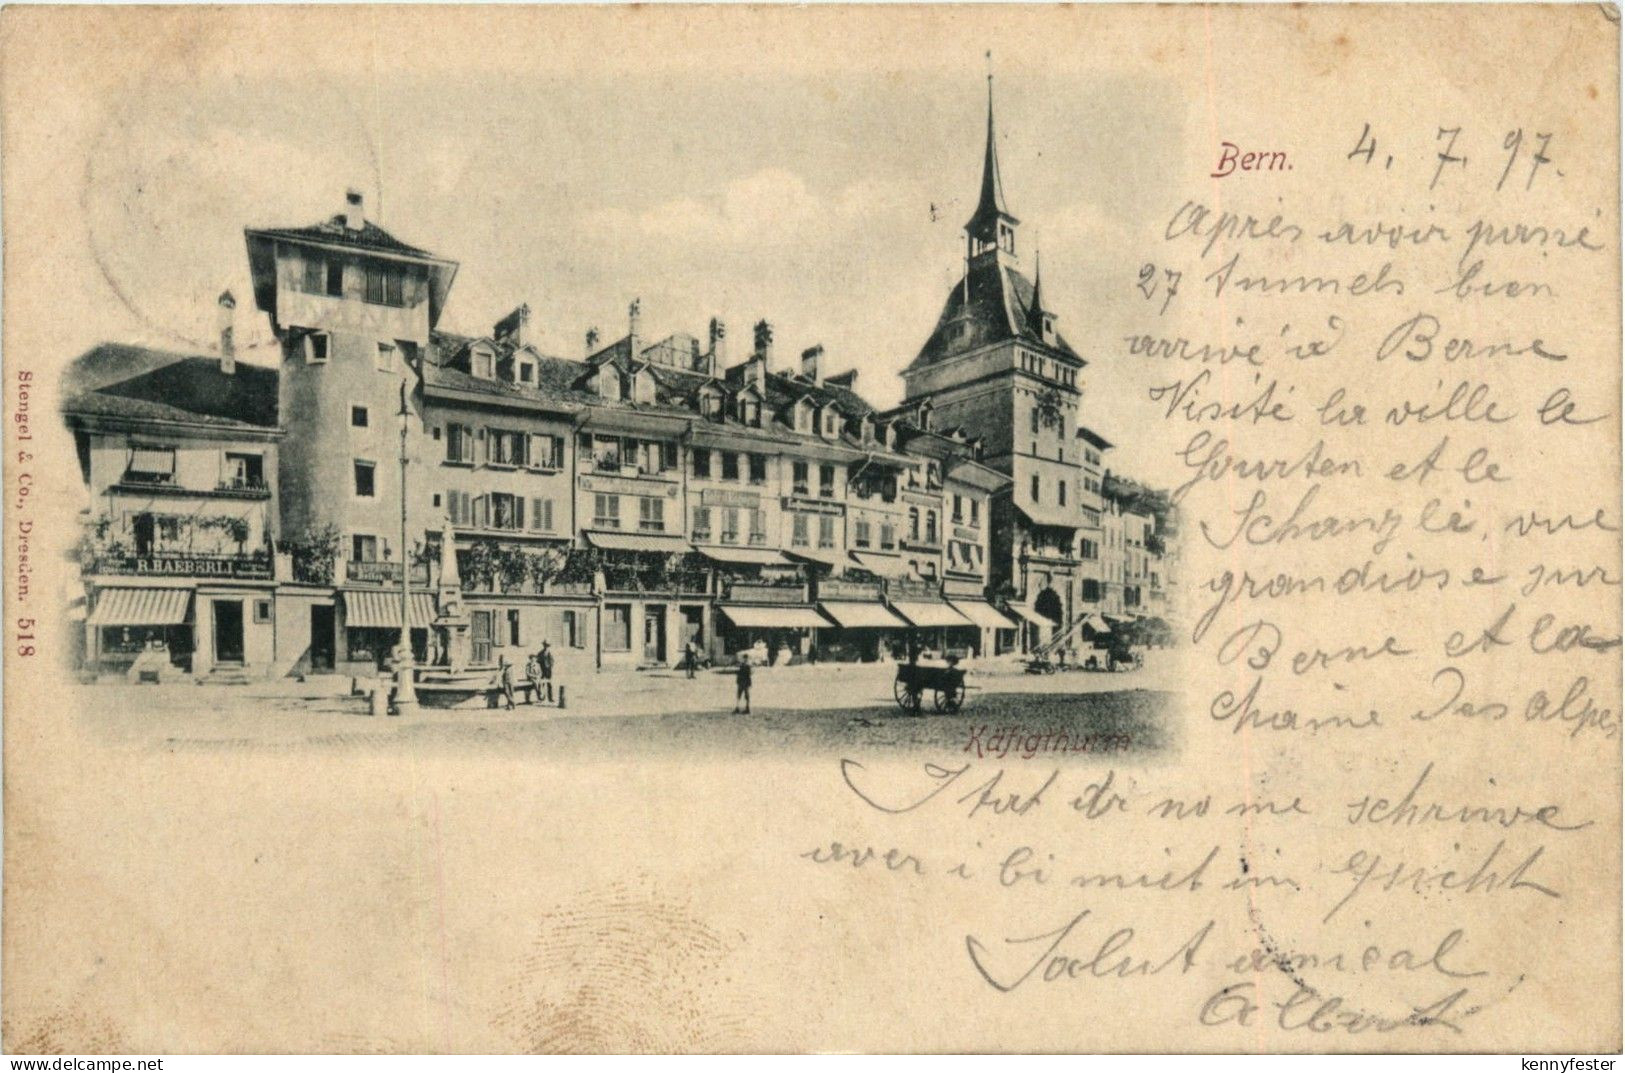 Bern. 4. 7. 97.
Après avoir passé
27 tunnels bien
arrivé à Berne
Visité la ville le
Gourten et le
Schanzli, vue
grandiose sur
Berne et la
chaine des alpes
I tat dr no me schriwe
aver i bi miet im gsicht
Salut amical
Albert
Käfigthurm
R. HAEBERLI
Stengel & Co., Dresden. 518
delcampe.net
kennyfester